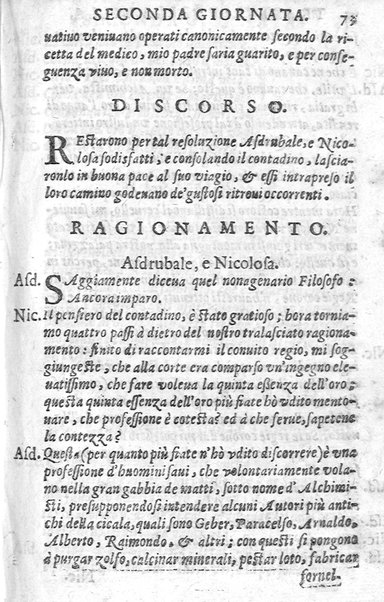 SECONDA GIORNATA. 73
uatiuo veniuano operati canonicamente secondo la ri-
cetta del medico, mio padre saria guarito, e per conse-
guenza viuo, e non morto.
DISCORSO.
REstarono per tal resoluzione Asdrubale, e Nico-
losa sodisfatti; e consolando il contadino, lascia-
ronlo in buona pace al suo viagio, & essi intrapreso il
loro camino godeuano de'gustosi ritroui occorrenti.
RAGIONAMENTO.
Asdrubale, e Nicolosa.
Asd. SAggiamente diceua quel nonagenario Filosofo:
Ancora imparo.
Nic. Il pensiero del contadino, è stato gratioso; hora tornia-
mo quattro passi à dietro del nostro tralasciato ragiona-
mento: finito di raccontarmi il conuito regio, mi sog-
giungeste, che alla corte era comparso vn'ingegno ele-
uatissimo, che fare voleua la quinta essenza dell'oro;
questa quinta essenza dell'oro più fiate hò vdito mento-
uare, che professione è cotesta? ed à che serue, sapetene
la contezza?
Asd. Questa (per quanto più fiate n'hò vdito discorrere) è vna
professione d'huomini saui, che volontariamente vola-
no nella gran gabbia de matti, sotto nome d'Alchimi-
sti, presupponendosi intendere alcuni Autori più anti-
chi della cicala, quali sono Geber, Paracelso, Arnaldo,
Alberto, Raimondo, & altri; con questi si pongono
à purgar zolfo, calcinar minerali, pestar loto, fabricar
fornel-